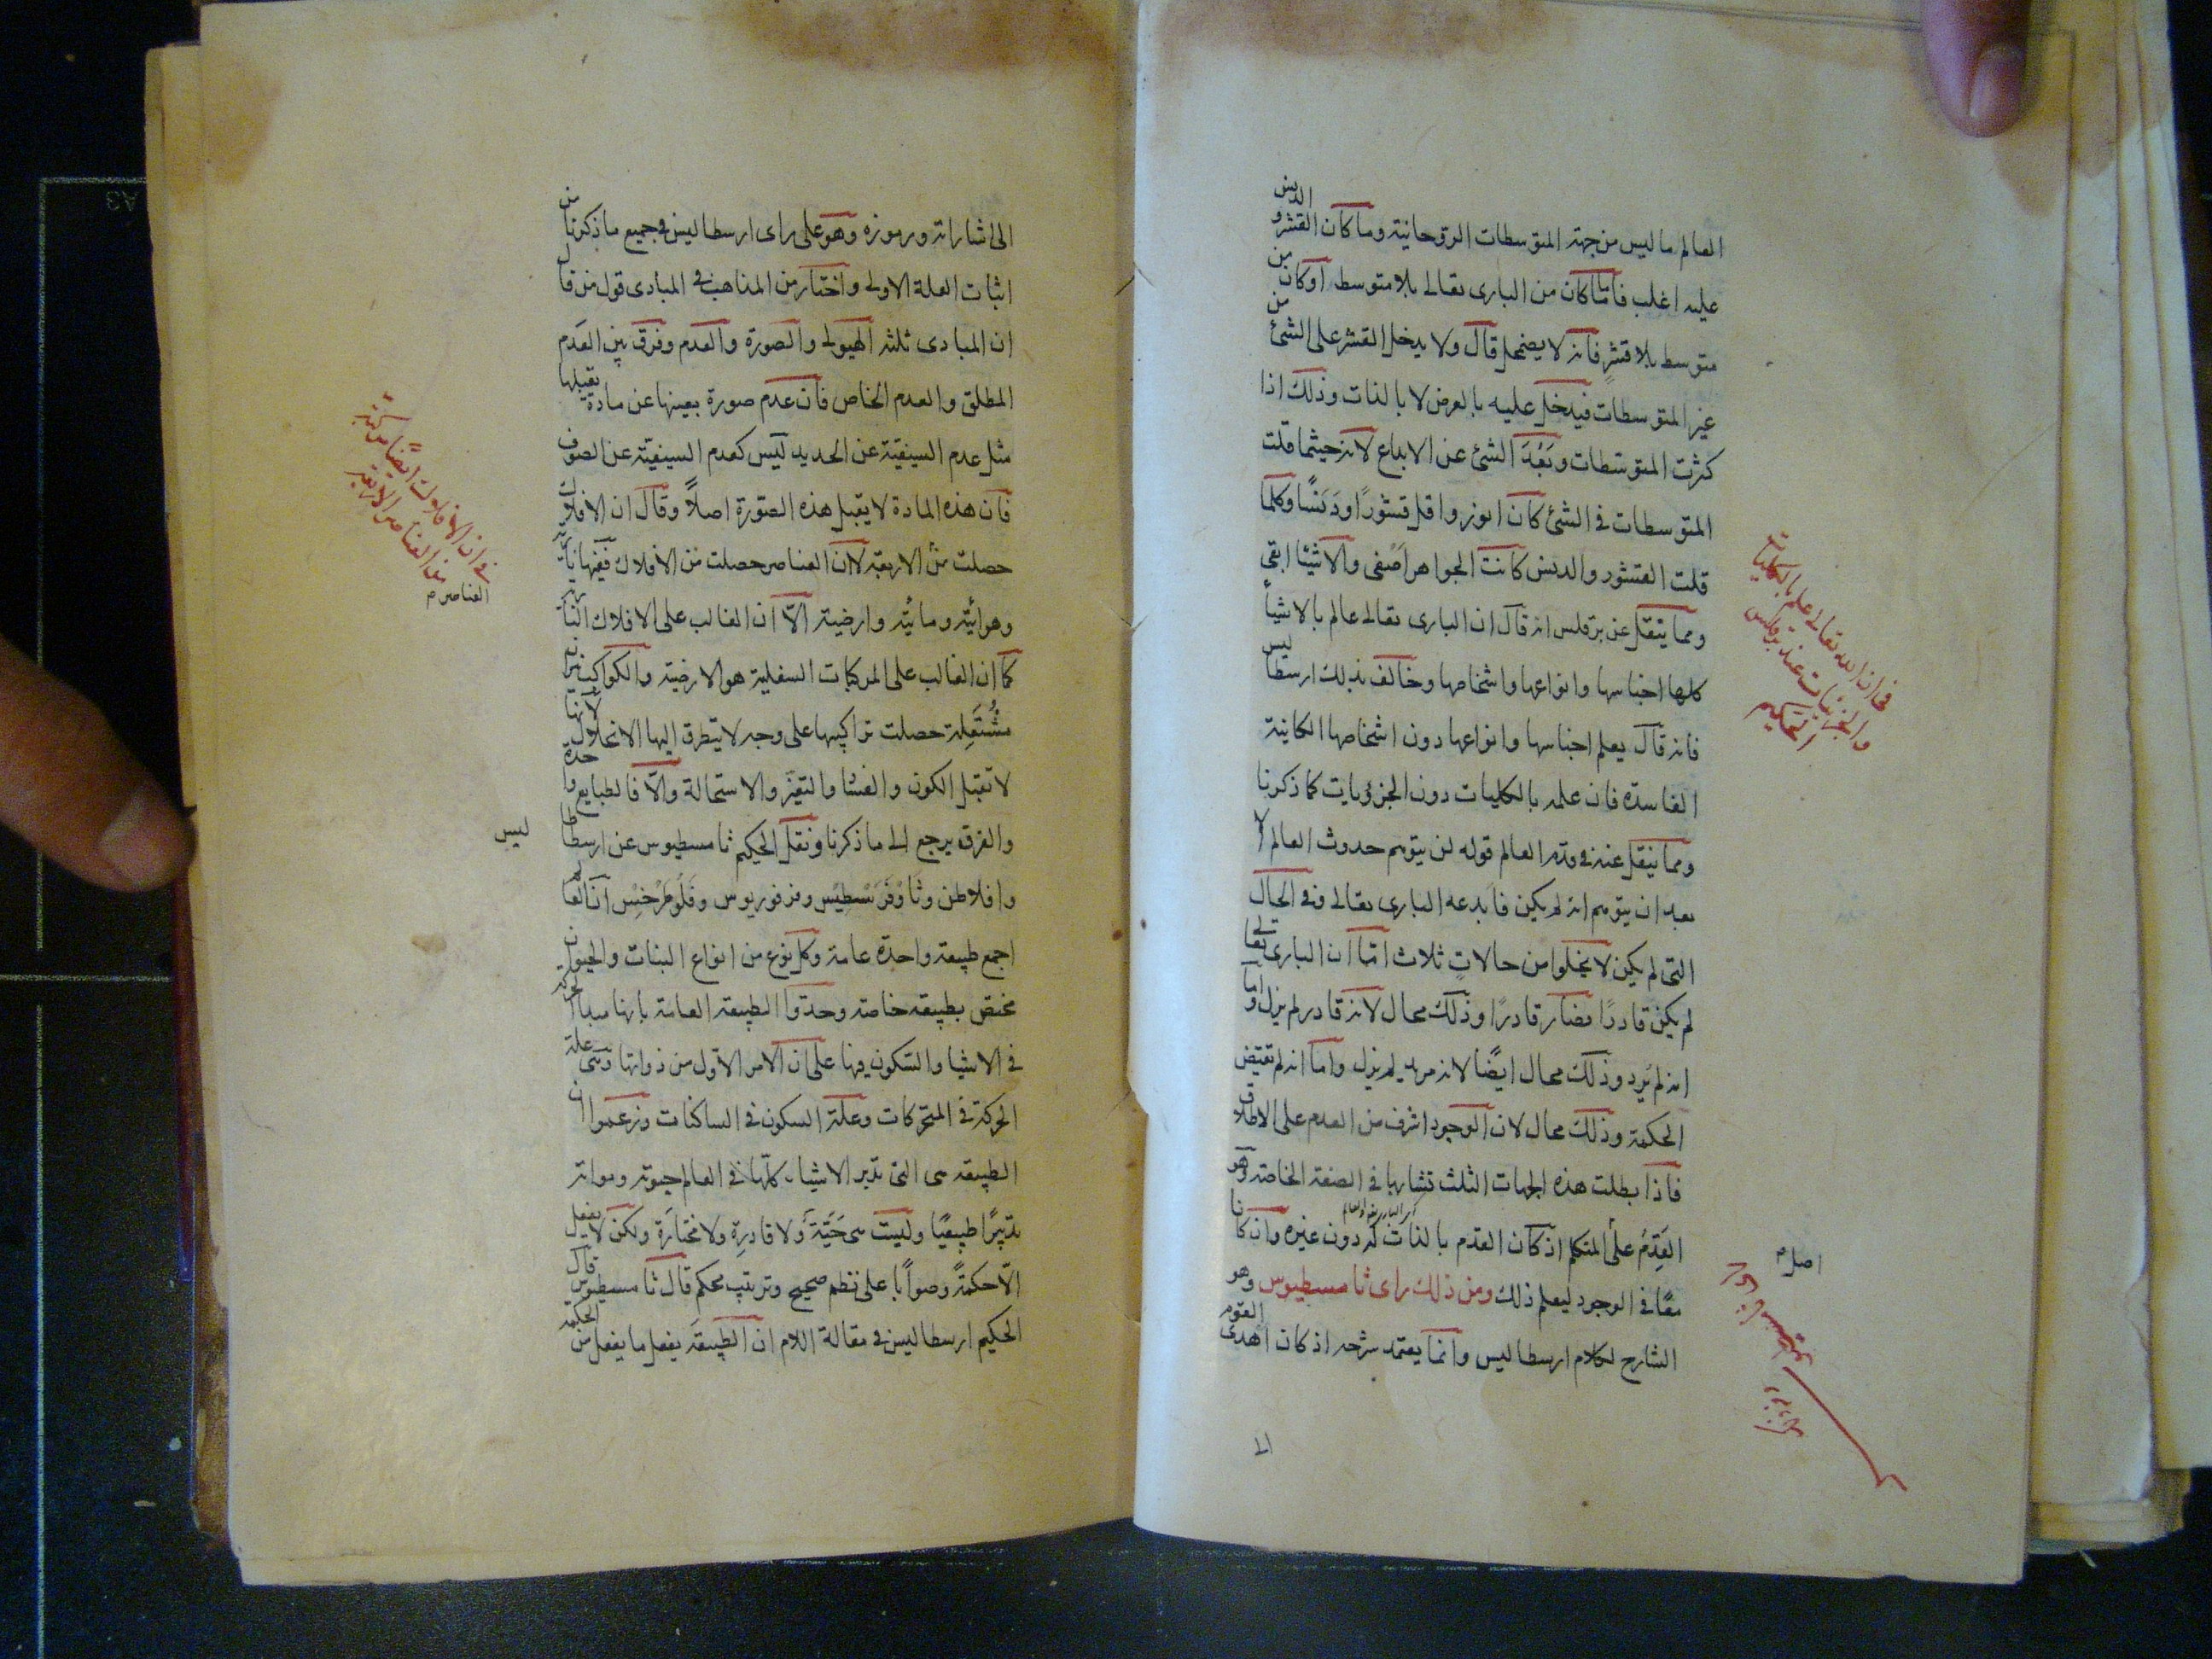 العالم ما ليس من جهة المتوسطات الروحانية وما كان القشر والدنس
عليه اغلب فاما ما كان من البارى تعالى بلا متوسط او كان من
متوسط بلا قشر فانه لا يضمحل قال ولا يدخل القشر على الشئ من
غير المتوسطات فيدخل عليه بالعرض لا بالذات وذلك اذا
كثرت المتوسطات وبَعُدَ الشئ عن الابداع لانه حيثما قلت
المتوسطات في الشئ كان انور واقل قشورًا ودنسًا وكلما
قلت القشور والدنس كانت الجواهر اصفى والاشيا ابقى
ومما ينقل عن برقلس انه قال ان البارى تعالى عالم بالاشيأ
كلها اجناسها وانواعها واشخاصها وخالف بذلك ارسطاليس
فانه قال يعلم اجناسها وانواعها دون اشخاصها الكاينة
الفاسدة فان علمه بالكليات دون الجزويات كما ذكرنا
ومما ينقل عنه في قدم العالم قوله لن يتوهم حدوث العالم الا
بعد ان يتوهم انه لم يكن فابدعه البارى تعالى وفى الحال
التى لم يكن لا يخلوا من حالاتٍ ثلاث امّا ان البارى تعالى
لم يكن قادرًا فصار قادرًا وذلك محال لانه قادر لم يزل واما
انه لم يُرِد وذلك محال ايضًا لانه مريد لم يزل واما انه لم تقتض
الحكمة وذلك محال لان الوجود اشرف من العدم على الاطلاق
فاذا بطلت هذه الجهات الثلث تشابها في الصفة الخاصة وهو
القدم على المتكلم اذ كان القدم بالذات له دون غيره وان كانا
معًا في الوجود ليعلم ذلك ومن ذلك راى ثامسطيوس وهو
الشارح لكلام ارسطاليس وانما يعتمد شرحه اذ كان اهدى القوم
فى ان الله تعالى علم بالكليات
والجزئيات عند برقلس
الحكيم
اصل م
الى اشاراته ورموزه وهو على راى ارسطاليس فى جميع ما ذكرنا من
اثبات العلة الاولى واختار من المذاهب فى المبادى قول من قال
ان المبادى ثلثه الهيولى والصورة والعدم وفرق بين العدم
المطلق والعدم الخاص فان عدم صورة بعينها عن مادة يقبلها
مثل عدم السيفيّة عن الحديد ليس كعدم السيفيّة عن الصوف
فان هذه المادة لا يقبل هذه الصورة اصلاً وقال ان الافلاك
حصلت من الاربعة لا ان العناصر حصلت من الافلاك ففيها نارية
وهوائيّه ومائيّه وارضية الاّ ان الغالب على الافلاك النارية
كما ان الغالب على المركبات السفلية هو الارضية والكواكب نيران
مُشتَعِلة حصلت تراكيبها على وجه لا يتطرق اليها الانحلال لانها
لا تقبل الكون والفسا والتغيّر والاستحالة والاّ فالطبايع واحدة
والفرق يرجع الى ما ذكرنا ونقل الحكيم ثامسطيوس عن ارسطاليس
وافلاطن وثاوْفَرَسْطِيْس وفرفوريوس وفلُوطَرْخِسْ ان العالم
اجمع طبيعة واحدة عامة وكل نوع من انواع النبات والحيوان
مختص بطبيعة خاصة وحدّوا الطبيعة العامة بانها مبدا الحركة
في الاشيا والسكون فيها على ان الامر الاول من ذواتها وهى علة
الحركة فى المتحركات وعلة السكون فى الساكنات وزعموا ان
الطبيعه هى التى تدبر الاشياء كلها فى العالم حيوته ومواته
تدبيرًا طبيعيًا وليست هى حَيَّةً ولا قادِرة ولا مختارَة ولكن لا يفعل
الّا حكمةً وصوابًا على نظم صحيح وترتيب محكم قال ثامسطيوس قال
الحكيم ارسطاليس فى مقالة اللام ان الطبيعة يفعل ما يفعل من الحكمة
فى ان الافلاك ايضًا مركبة
من العناصر الاربعة
العناصر م